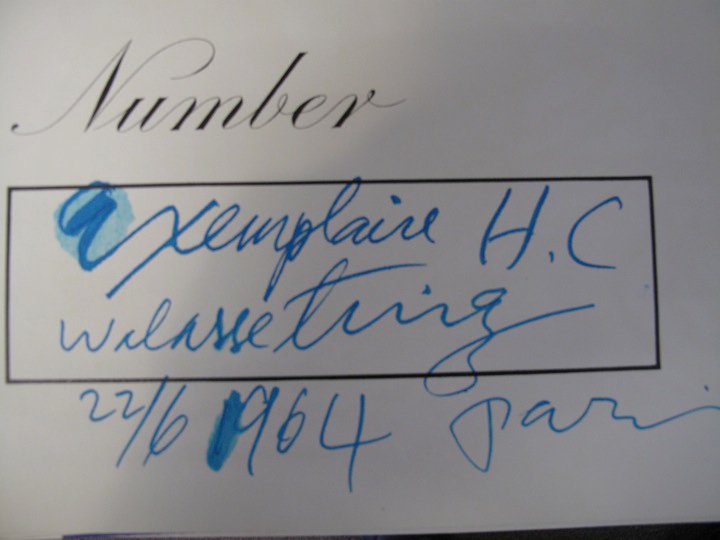 Number
Exemplaire H.C
walasse ting
22/6 1964 Paris